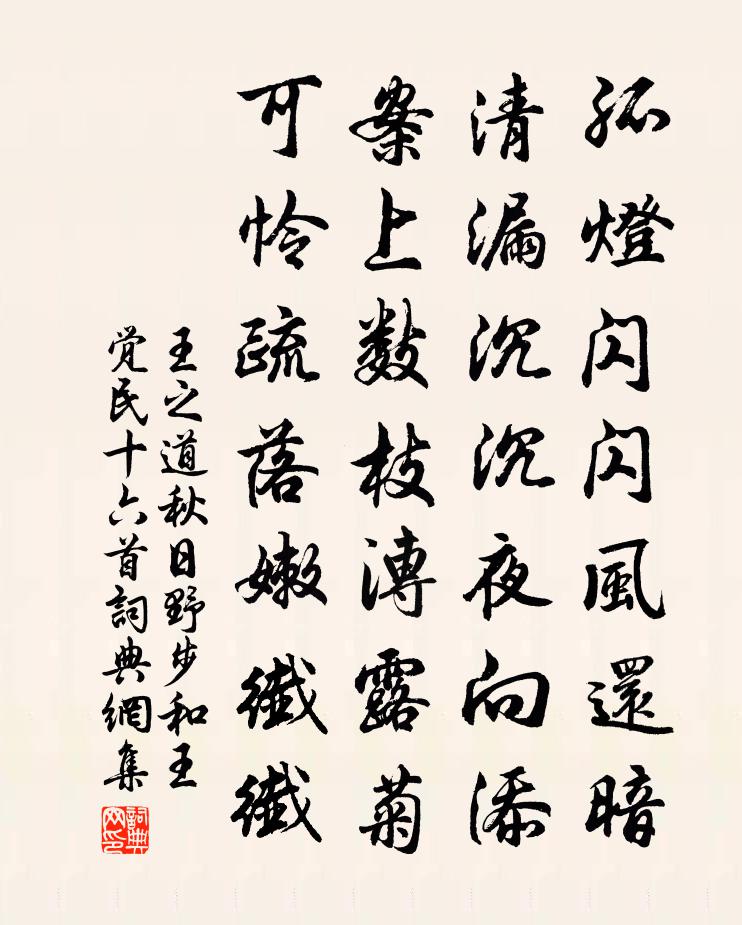 孤燈閃閃風還暗
清漏沉沉夜向添
案上数枝漙露菊
可怜疏落嫩纖纖
王之道秋日野步和王
觉民十六首詞典網集
詞典
网印